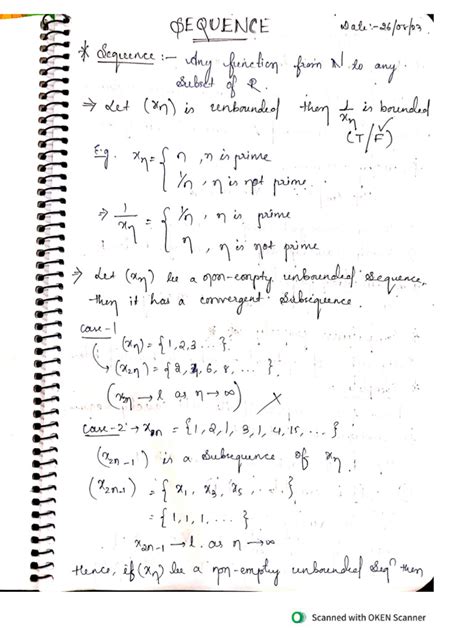 SEQUENCE
Date:- 26/08/23
* Sequence :- Any function from N to any
subset of R.
⇒ Let (xn) is unbounded then 1/xn is bounded
(T/F✓)
E.g. xn = { n , n is prime
1/n , n is not prime
⇒ 1/xn = { 1/n , n is prime
n , n is not prime
⇒ Let (xn) be a non-empty unbounded sequence,
then it has a convergent subsequence.
Case-1
(xn) = {1, 2, 3 ... }
↳ (x2n) = {2, 4, 6, 8, ... }
(xn → l as n → ∞) X
Case-2 → xn = {1, 2, 1, 3, 1, 4, 15, ... }
(x2n-1) is a subsequence of xn
(x2n-1) = { x1, x3, x5, ... }
= {1, 1, 1, ... }
x2n-1 → l. as n → ∞
Hence, if (xn) be a non-empty unbounded seqn then
Scanned with OKEN Scanner